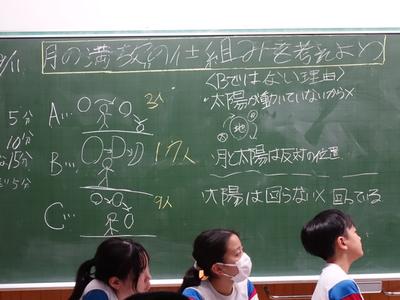 月の満ち欠けの仕組みを考えよう
/11
5分
10分
15分
5分
A…
2人
B…
17人
C…
9人
〈Bではない理由〉
・太陽が動いていないから×
地
・月と太陽は反対の位置
太陽は回らない× 回っている